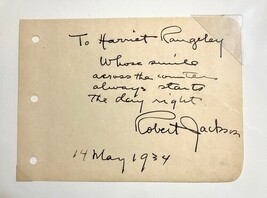 To Harriet Rangeley
Whose smile
across the counter
always starts
The day right
Robert Jackson
14 May 1934